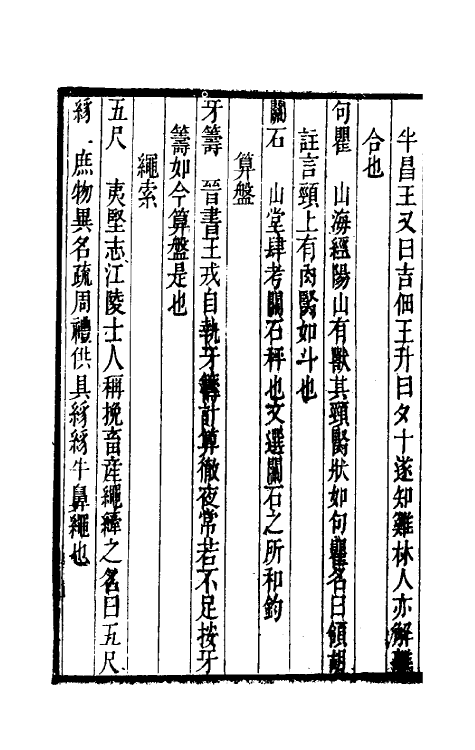 半昌王又曰吉佃王升曰夕十遂知雞林人亦解離
合也
句瞿　山海經陽山有獸其頸䏿狀如句瞿名曰領胡
註言頸上有肉䏿如斗也
關石　山堂肆考關石秤也文選關石之所和鈞
算盤
牙籌　晉書王戎自執牙籌計算徹夜常若不足按牙
籌如今算盤是也
繩索
五尺　夷堅志江陵士人稱挽畜産繩縴之名曰五尺
絼　庶物異名疏周禮供其絼絼牛鼻繩也